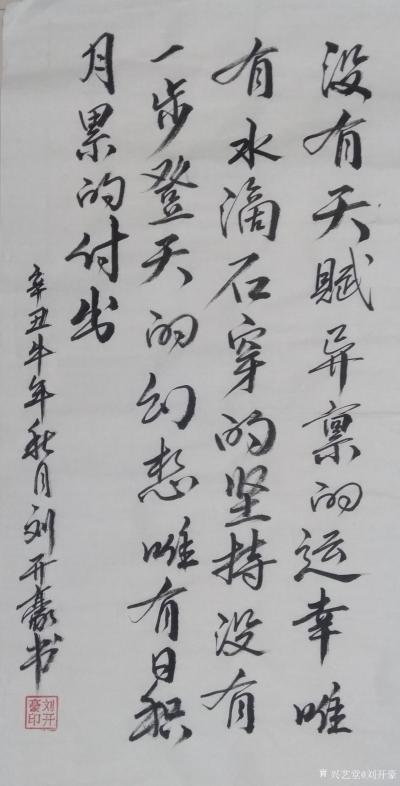 没有天赋异禀的运幸唯
有水滴石穿的坚持没有
一步登天的幻想唯有日积
月累的付出
辛丑牛年秋月刘开豪书
刘开豪印
兴艺堂@刘开豪